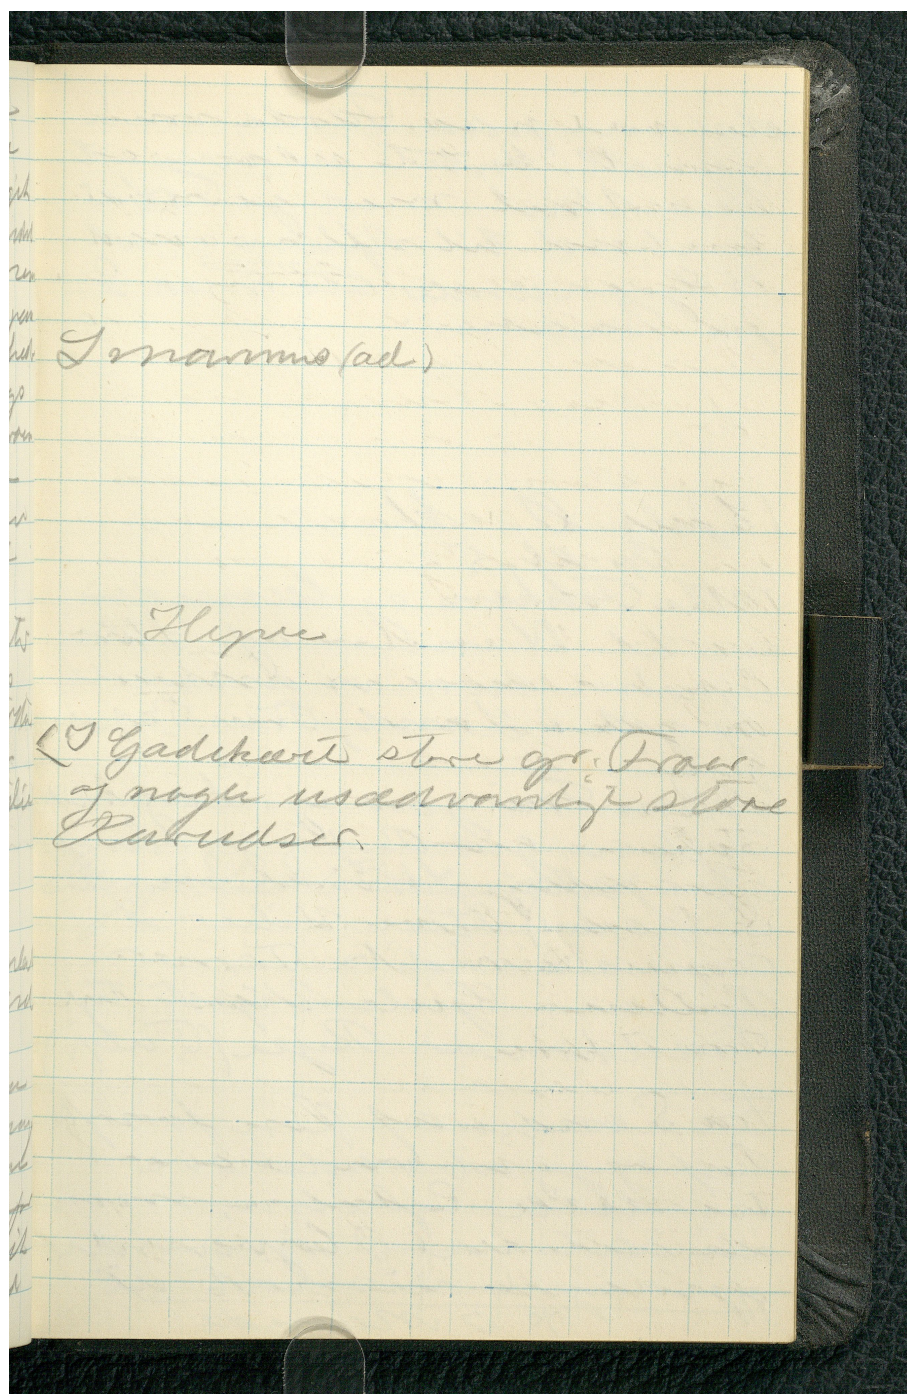 L marinus (ad)
Hejre
(I Gadekæret store gr. Frøer
og nogle usædvanligt store
Karudser.